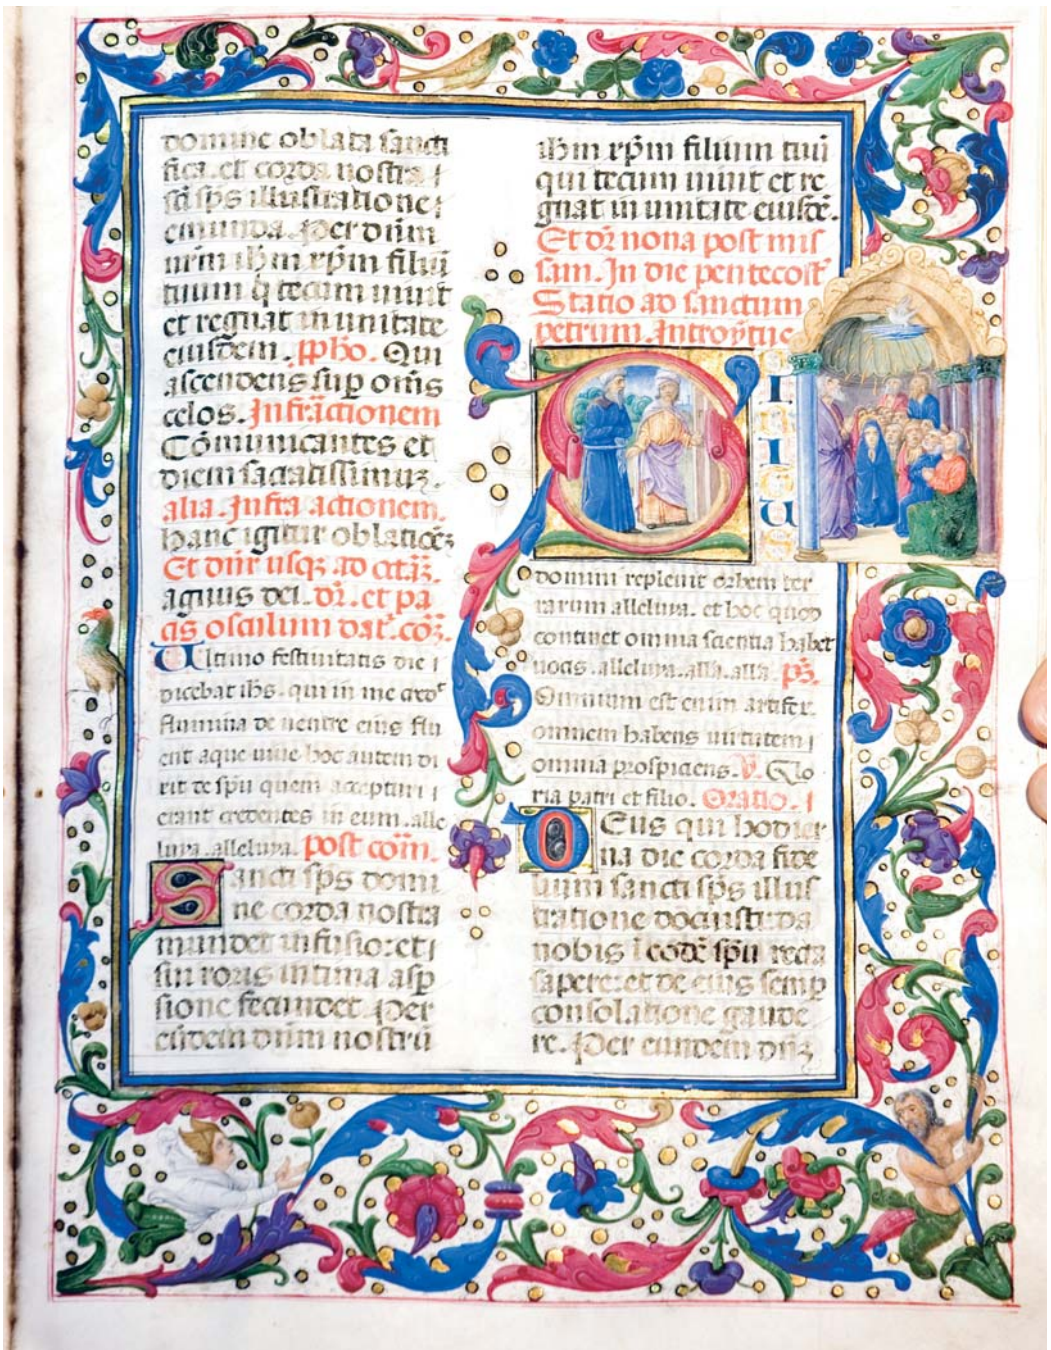 domine oblata sancti
fica. et corda nostra i
sci sps illustratione i
emunda. Per dnm
nrm ihm xpm filiu
tuum q tecum vivit
et regnat in unitate
eiusdem. ppho. Qui
ascendens sup oms
celos. Infractionem
Cōmunicantes et
diem sacratissimuz.
alia. Infra actionem.
hanc igitur oblationēz
Et dnr usqz ad cit. iz.
agnus dei. dr. et pa
cis osculum dat. cōz.
Ultimo festivitatis die i
dicebat ihs. qui in me cred
flumina de ventre eius flu
ent aque vive hoc autem di
xit de spu quem accepturi i
erant credentes in eum. alle
luya. alleluya. post com.
Sancti sps domi
ne corda nostra
mundet infusio: et i
sui roris intima asp
sione fecundet. Per
eūdem dnm nostrū
ihm xpm filium tuū
qui tecum vivit et re
gnat in unitate eiusdē.
Et dr nona post mis
sam. In die pentecost
Statio ad sanctum
petrum. Introytus
SPIRITUS
domini replevit orbem ter
rarum alleluya. et hoc quod
continet omnia scientia habet
vocis. alleluya. alla. alla. ps.
Omnium est enim artifex
omnem habens virtutem i
omnia prospiciens. V. Glo
ria patri et filio. Oratio. i
Deus qui hodier
na die corda fide
lium sancti sps illus
tratione docuisti: da
nobis i eodē spu recta
sapere: et de eius semp
consolatione gaude
re. Per eundem dnz